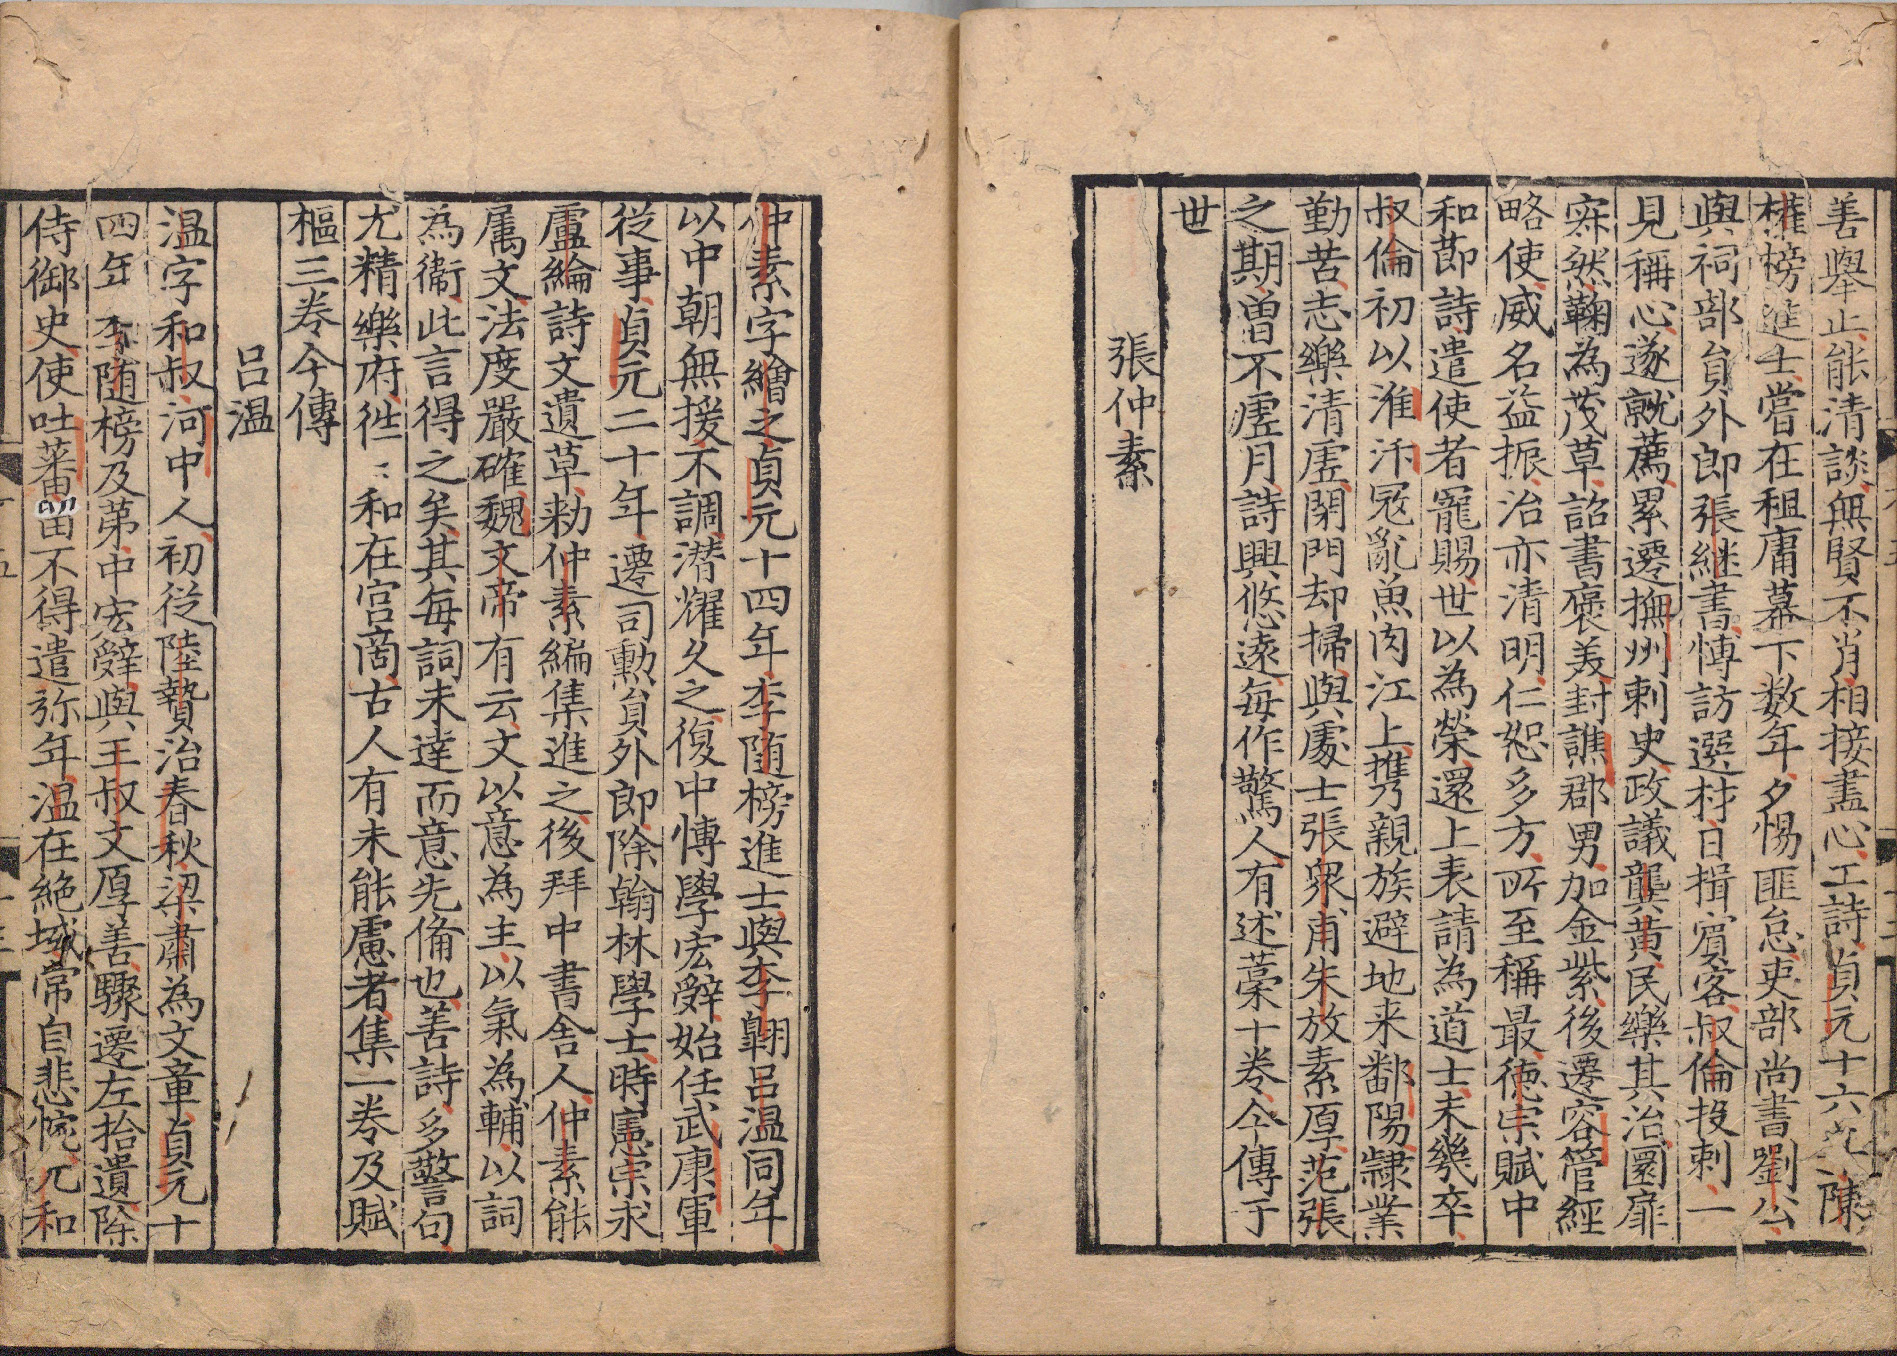 善舉止能清談無賢不肖相接盡心工詩貞元十六年陳
權榜進士嘗在租庸幕下数年夕惕匪怠吏部尚書劉公
與祠部貟外郎張継書慱訪選材日揖賔客叔倫投刺一
見稱心遂就薦累遷撫州刺史政議龔黄民樂其治圜扉
寂然鞠為茂草詔書褒美封譙郡男加金紫後遷容管經
略使威名益振治亦清明仁恕多方所至稱最德宗賦中
和莭詩遣使者寵賜世以為榮還上表請為道士未幾卒
叔倫初以淮汴冦亂魚肉江上携親族避地来鄱陽隷業
勤苦志樂清虗閉門却掃與處士張衆甫朱放素厚范張
之期曽不虗月詩興悠遠每作驚人有述藁十卷今傳于
世
張仲素
仲素字繪之貞元十四年李随榜進士與李翺吕温同年
以中朝無援不調潜耀久之復中慱學宏辤始任武康軍
從事貞元二十年遷司勲貟外郎除翰林學士時憲宗求
盧綸詩文遺草勑仲素編集進之後拜中書舎人仲素能
属文法度嚴確魏文帝有云文以意為主以氣為輔以詞
為衛此言得之矣其每詞未達而意先備也善詩多警句
尤精樂府徃〻和在宫商古人有未能慮者集一卷及賦
樞三卷今傳
吕温
温字和叔河中人初從陸贄治春秋梁肅為文章貞元十
四年李随榜及第中宏辤與王叔文厚善驟遷左拾遺除
侍御史使吐蕃留不得遣弥年温在絶域常自悲惋元和